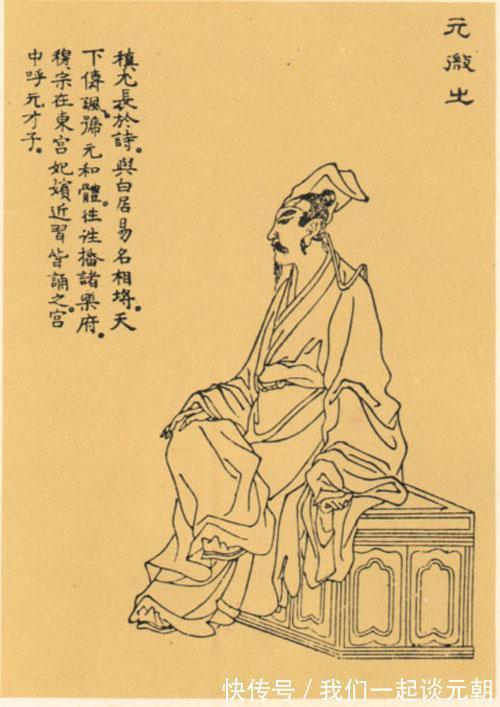 元微之
稹尤長於詩。與白居易名相埒。天
下傳諷。號元和體。往往播諸樂府。
穆宗在東宮妃嬪近習皆誦之宮
中呼元才子。
快传号／我们一起谈元朝